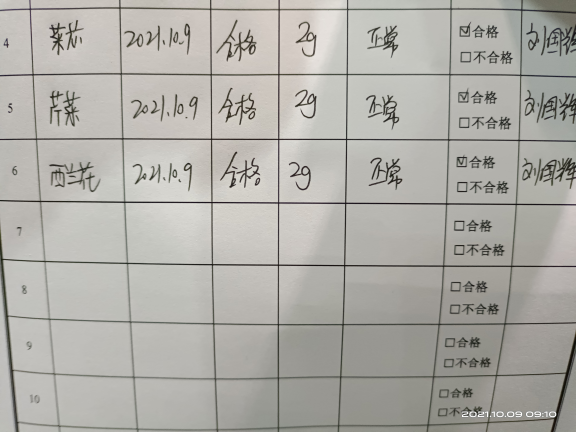 4 菜芯 2021.10.9 合格 2g 正常 ☑合格 刘国辉
□不合格
5 芹菜 2021.10.9 合格 2g 正常 ☑合格 刘国辉
□不合格
6 西兰花 2021.10.9 合格 2g 正常 ☑合格 刘国辉
□不合格
7 □合格
□不合格
8 □合格
□不合格
9 □合格
□不合格
10 □合格
□不合格
2021.10.09 09:10